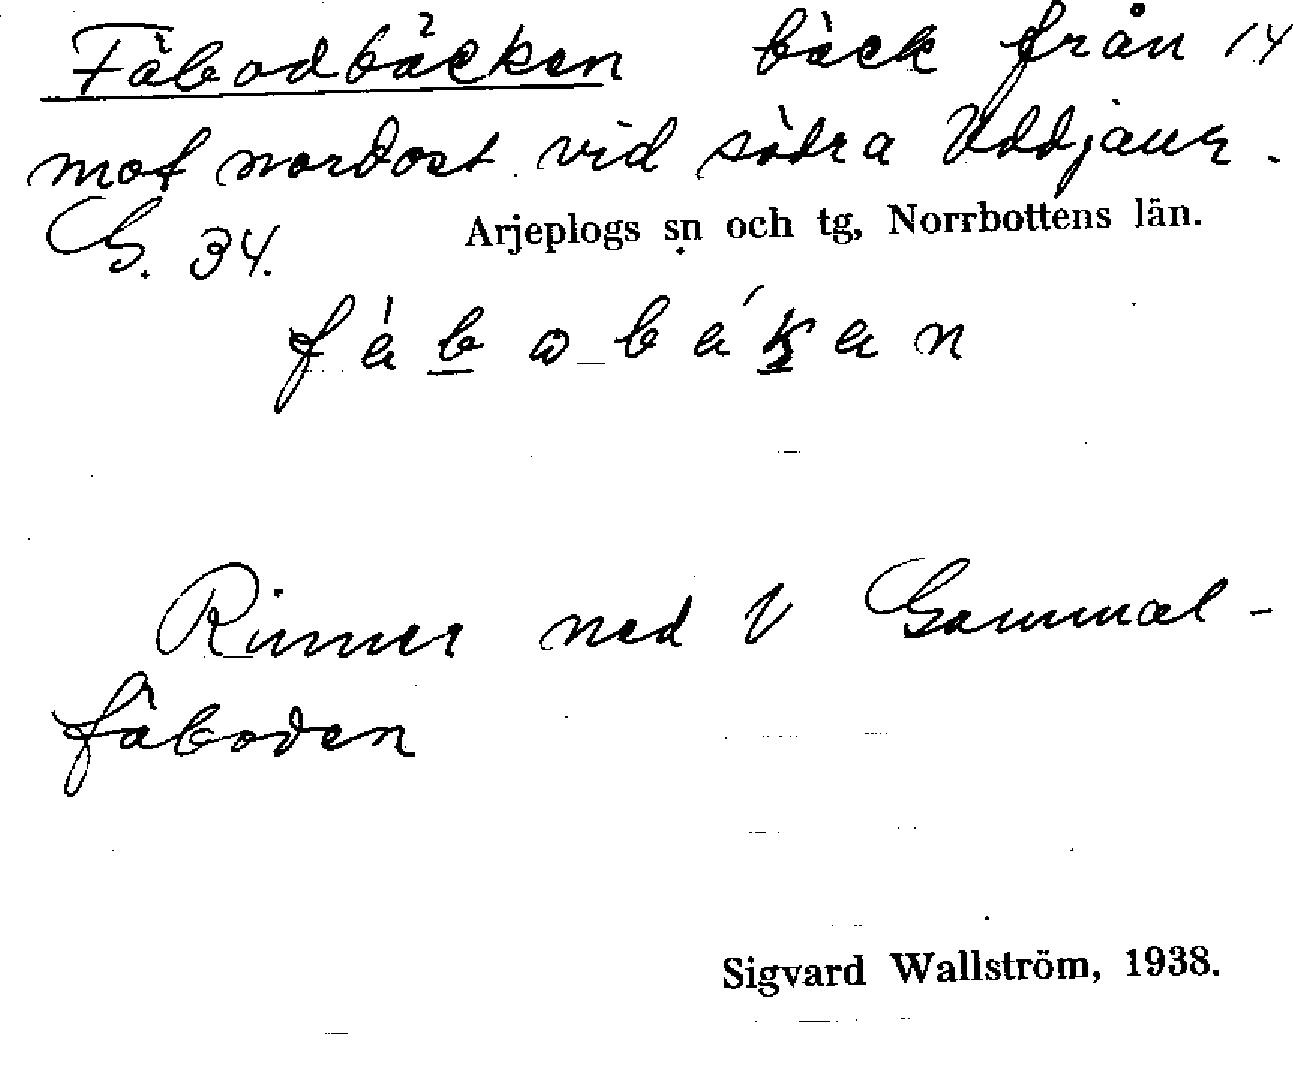 Fäbodbäcken bäck från 14
mot nordost vid södra Uddjaur.
G. 34.
Arjeplogs sn och tg, Norrbottens län.
Rinner ned V Gammal-
fäboden
Sigvard Wallström, 1938.